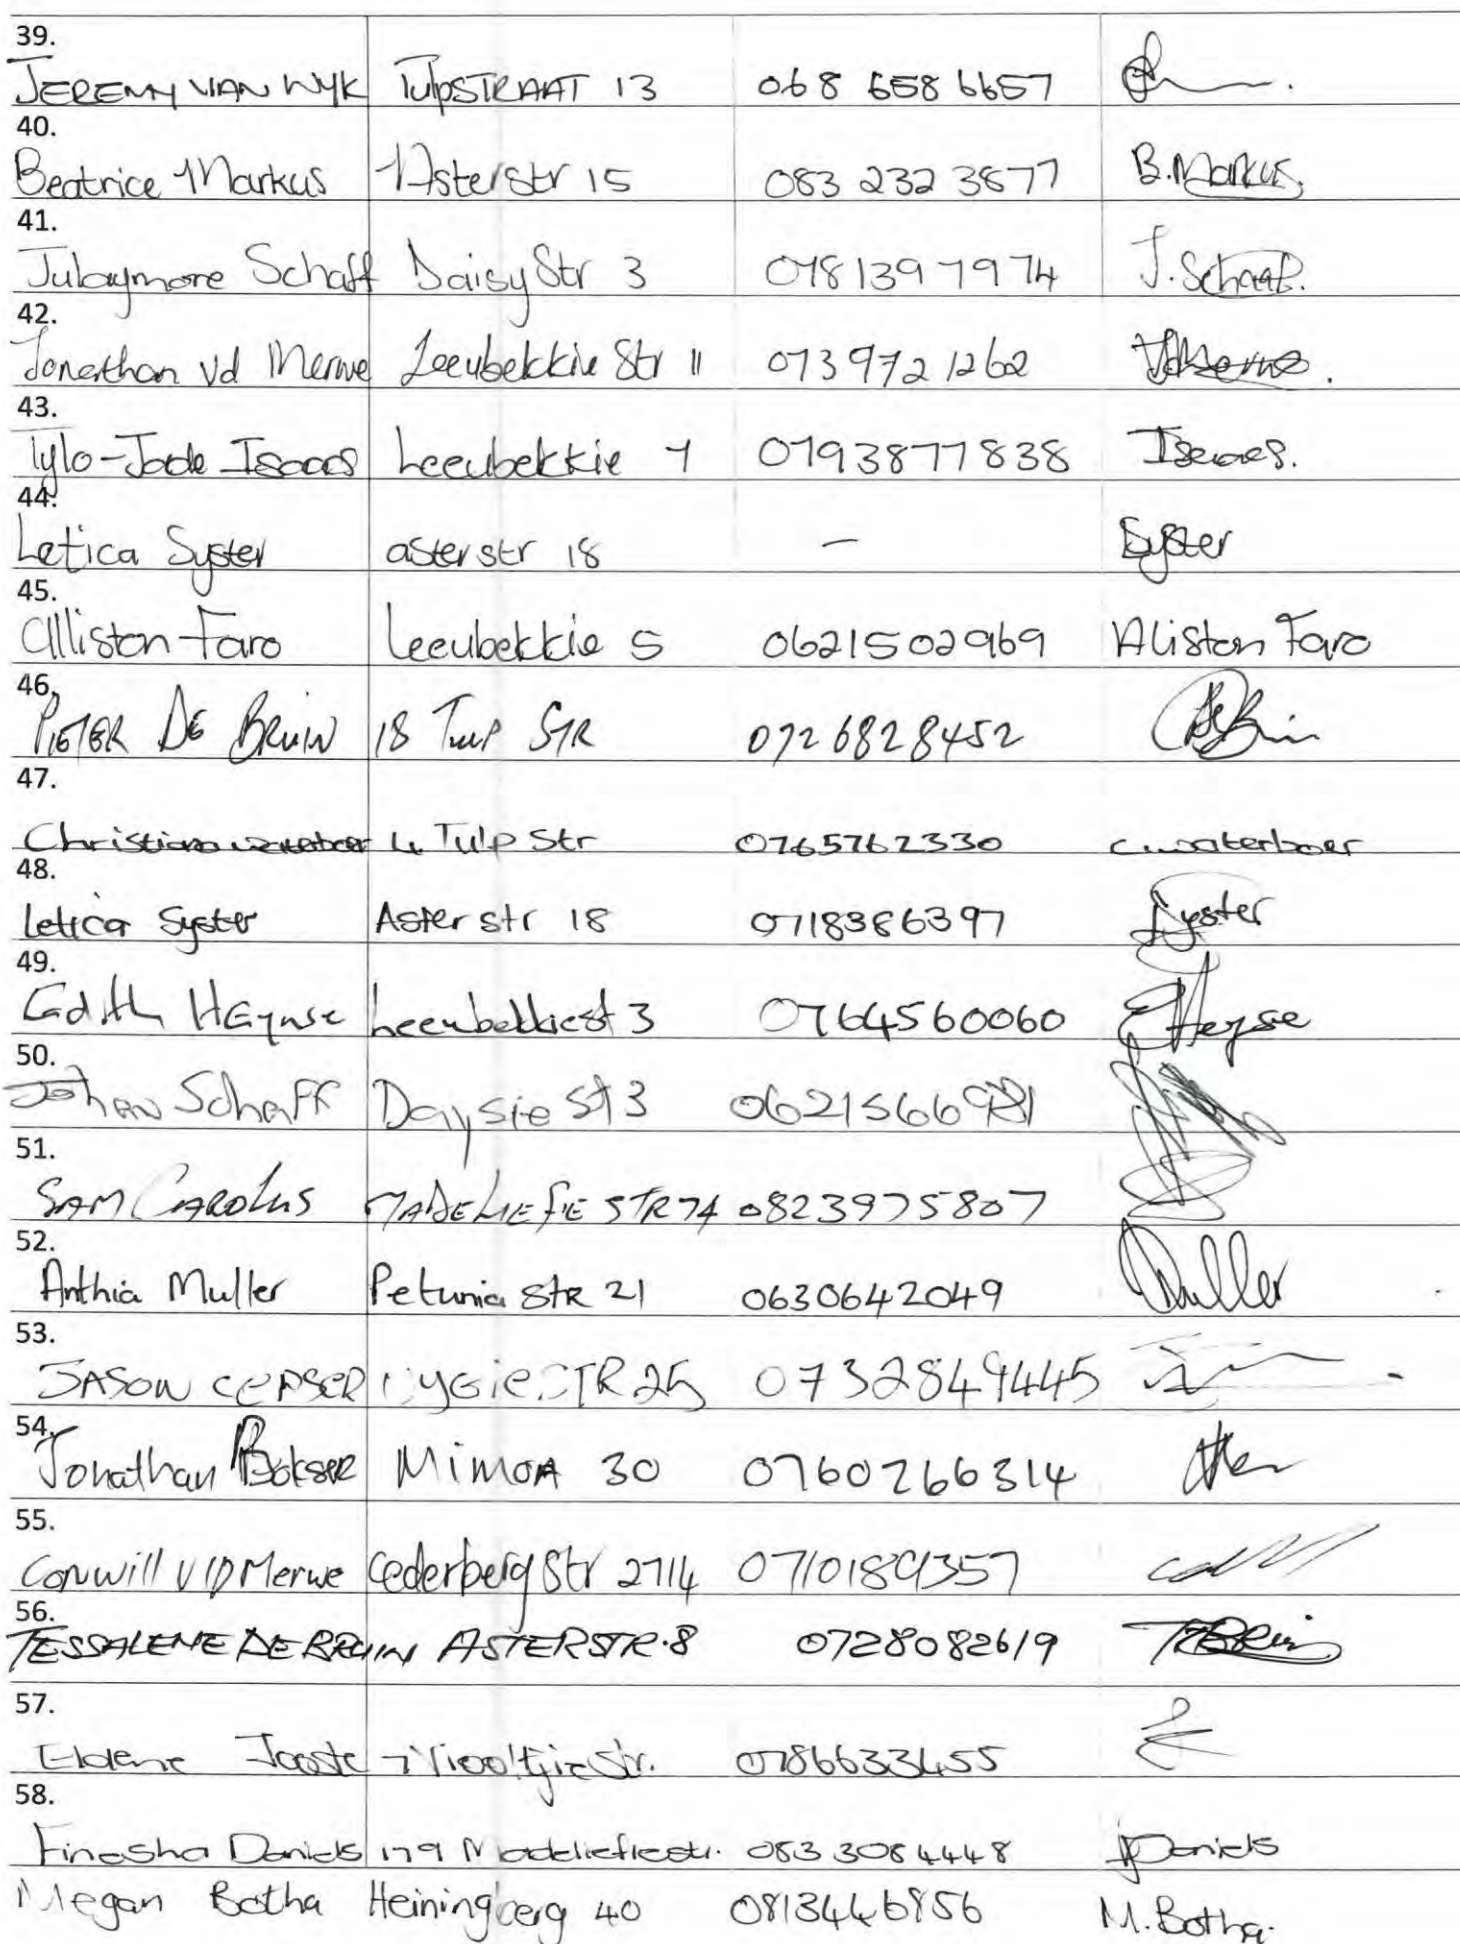 39.
JEREMY VAN WYK TulpSTRAAT 13 068 658 6657
40.
Beatrice Markus Asterstr 15 083 232 3877 B.Markus.
41.
Julaymore Schaff Daisy Str 3 0781397974 J.Schaaf.
42.
Jonathan vd Merwe Leeubekkie Str 11 073 972 1262
43.
Tylo-Jade Isaacs Leeubekkie 7 0793877838 Isaacs.
44.
Letica Syster aster str 18 – Syster
45.
Alliston Faro Leeubekkie 5 0621502969 Aliston Faro
46.
PIETER DE BRUIN 18 Tulp STR 0726828452
47.
Christiana waterboer 4 Tulp Str 0765762330 c.waterboer
48.
Letica Syster Aster str 18 0718386397 Syster
49.
Edith Heynse Leeubekkiest 3 0764560060 EHeyse
50.
Johan Schaff Daysie St 3 0621566981
51.
SAM CAROLUS MADELIEFIE STR 74 0823975807
52.
Anthia Muller Petunia Str 21 0630642049 Muller
53.
JASON STR 25 0732849445
54.
Jonathan Bokser Mimoa 30 0760266314
55.
Conwill V/D Merwe Cederberg Str 2714 0710189357
56.
TESSALENE DE BRUIN ASTERSTR.8 0728082619
57.
Eldene Jooste 7 Viooltjie Str. 0786633455
58.
Finesha Daniels 179 Madeliefiestr. 083 308 4448 Daniels
Megan Botha Heiningberg 40 0813446856 M.Botha.